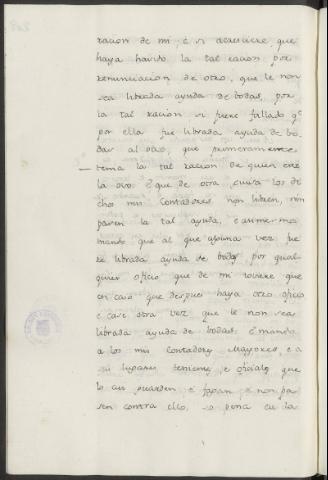 racion de mi, é si acaesciere, que
haya havido la tal racion por
renunciacion de otro, que le non
sea librada ayuda de bodas, por
la tal racion si fuere fallado qᵉ
por ella fue librada ayuda de bo-
das al otro, que primeramente
tenia la tal racion de quien ese
la ovo. é que de otra guisa los di-
chos mis Contadores non libren, nin
pasen la tal ayuda, é asimesmo
mando que al que alguna vez fue-
re librada ayuda de bodas por qual-
quier oficio que de mi toviere que
en caso que despues haya otro oficio
é case otra vez que le non sea
librada ayuda de bodas. É mando
a los mis Contadores Mayores, é a
sus lugares tenientes, é oficiales que
lo asi guarden, é fagan, é non pa-
sen contra ello, so pena de la